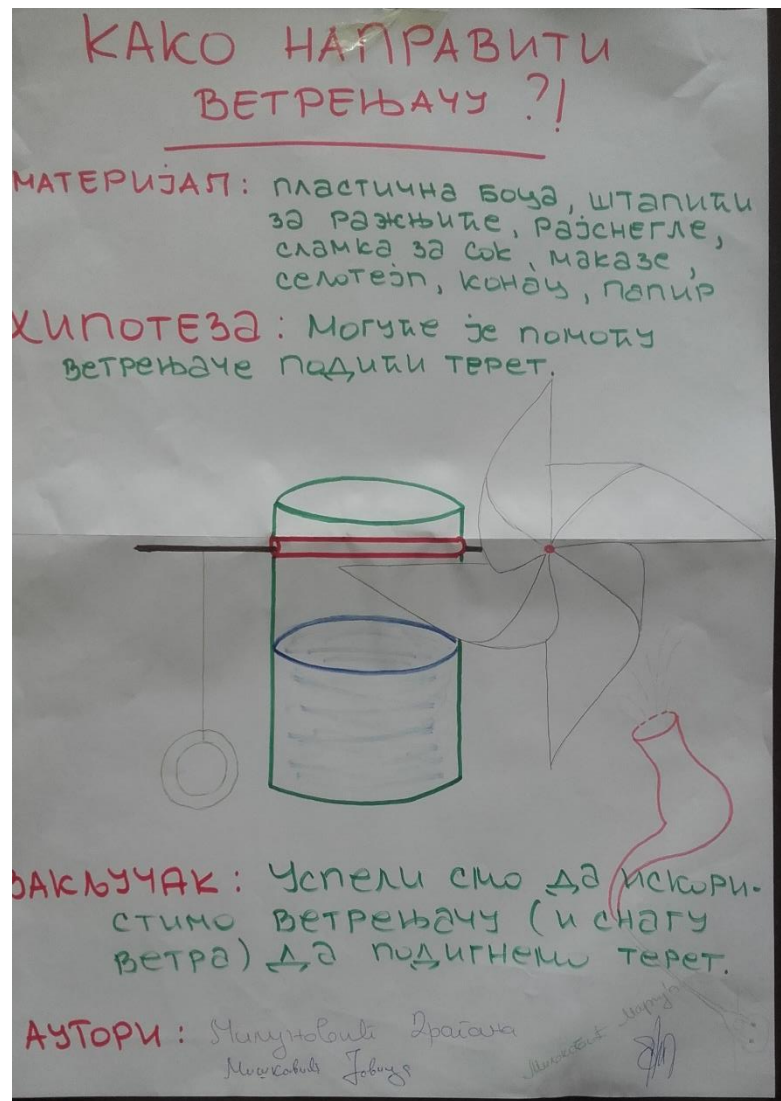 КАКО НАПРАВИТИ
ВЕТРЕЊАЧУ ?!
МАТЕРИЈАЛ: пластична боца, штапићи
за ражњиће, рајснегле,
сламка за сок, маказе,
селотејп, конац, папир
ХИПОТЕЗА: Могуће је помоћу
ветрењаче подићи терет.
ЗАКЉУЧАК: Успели смо да искори-
стимо ветрењачу (и снагу
ветра) да подигнемо терет.
АУТОРИ: Милуновић Драгана
Мишковић Јовица